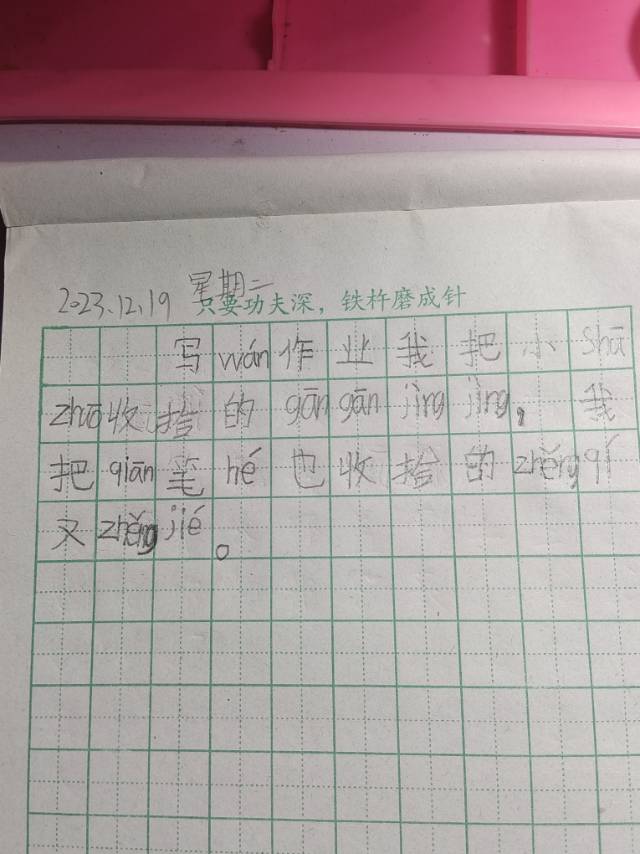 2023.12.19 星期二
只要功夫深，铁杵磨成针
写wán作业我把小Shū
zhuō收拾的gān gān jìng jìng，我
把qiān笔hé也收拾的zhěng qí
又zhěng jié。